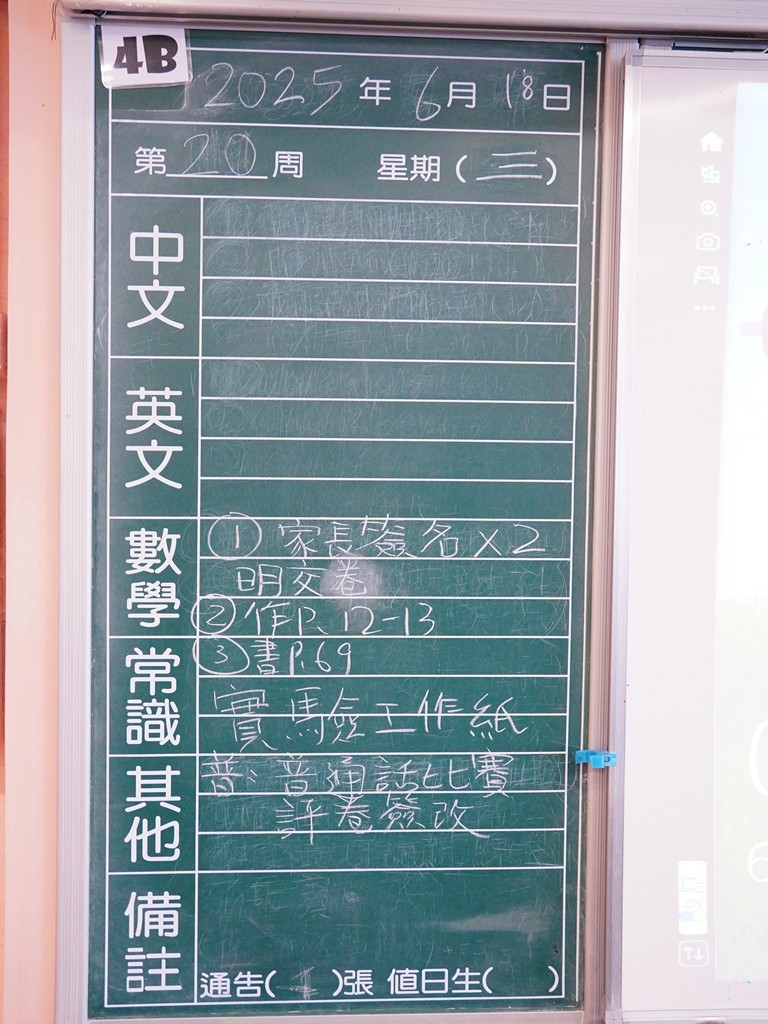 4B
2025年6月18日
第20周 星期(三)
中文
英文
數學
① 家長簽名×2
明交卷
② 作P.12-13
③ 書P.69
常識
實驗工作紙
其他
普、普通話比賽
評卷簽改
備註
通告( )張 值日生( )